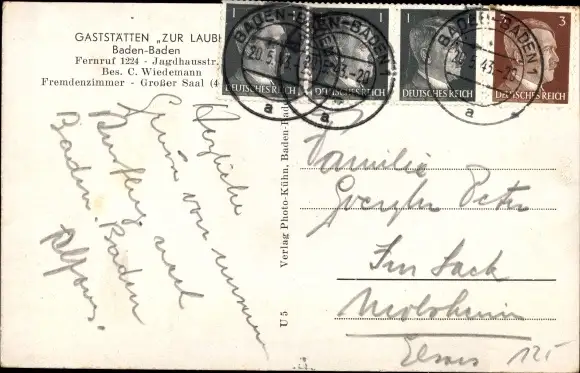 GASTSTÄTTEN „ZUR LAUB
Baden-Baden
Fernruf 1224 - Jagdhausstr.
Bes. C. Wiedemann
Fremdenzimmer - Großer Saal (4
1
1
1
3
DEUTSCHES REICH
DEUTSCHES REICH
DEUTSCHES REICH
DEUTSCHES REICH
BADEN-BADEN 1
20.5.43.-20
a
BADEN-BADEN 1
a
BADEN-BADEN 1
a
Herzliche
Grüße von unserem
Ausflug nach
Baden-Baden
Alfons.
U 5
Verlag Photo-Kühn, Baden-Bad
Familie
Peter
Im Sack
Molsheim
Elsass 125